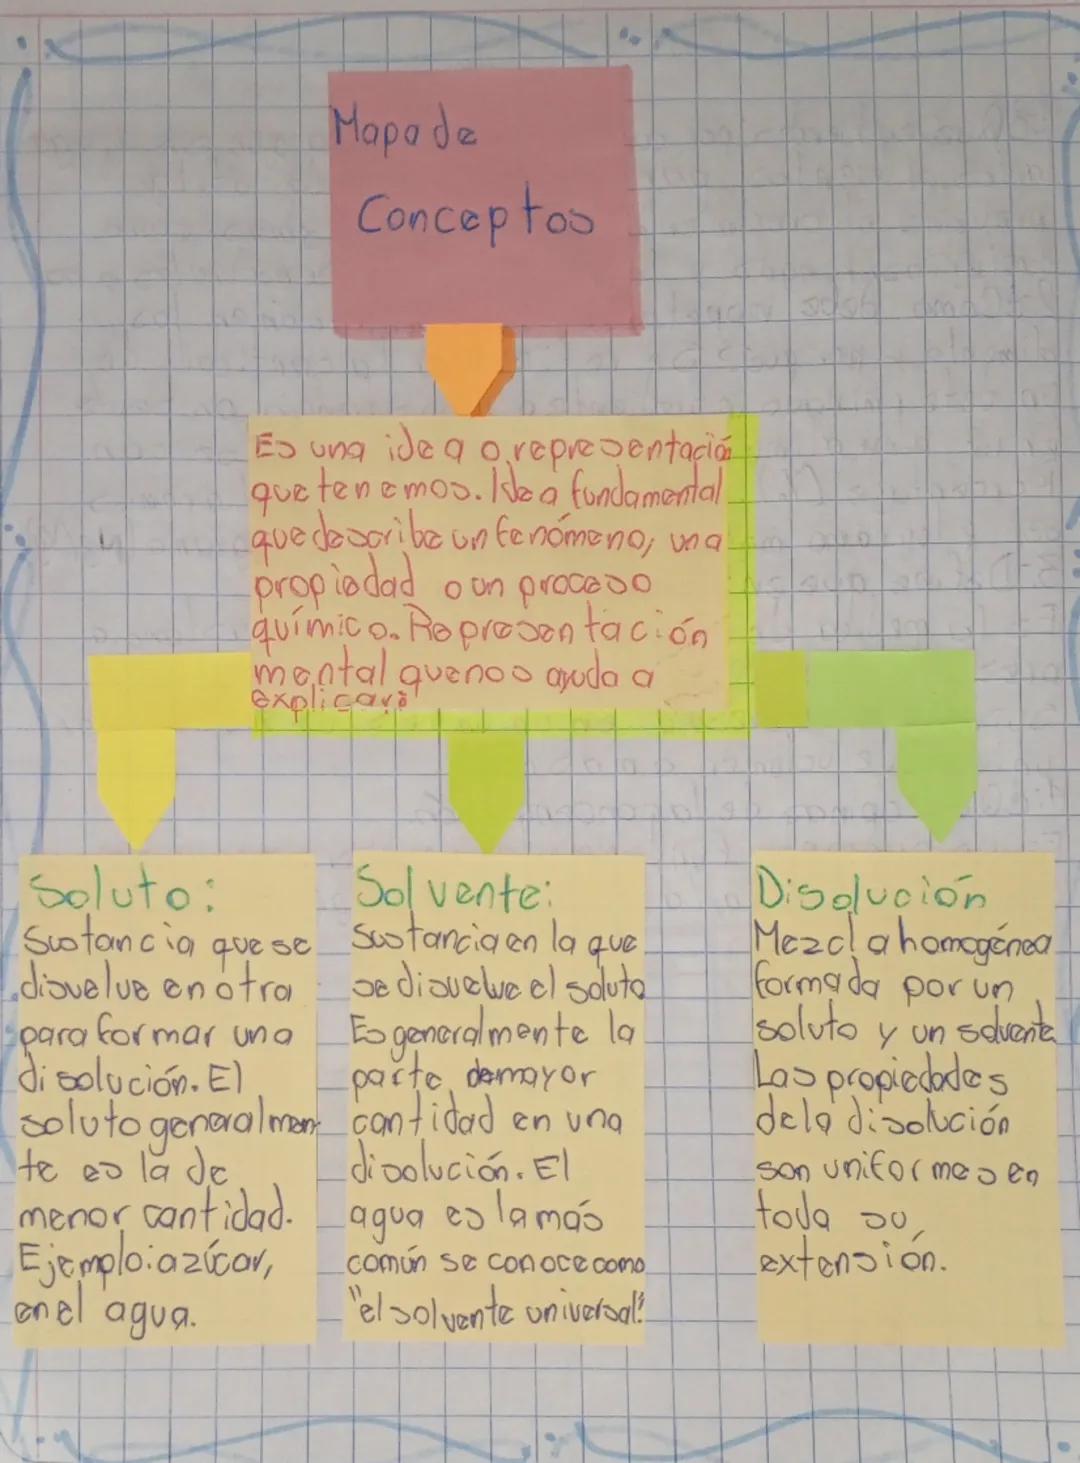 Mapa de
Conceptos
Es una idea o representación
que tenemos. Idea fundamental
que describe un fenómeno, una
propiedad o un proceso
químico. Representación
mental que nos ayuda a
explicar.
Soluto:
Sustancia que se
disuelve en otra
para formar una
disolución. El
soluto generalmen
te es la de
menor cantidad.
Ejemplo: azúcar,
en el agua.
Solvente:
Sustancia en la que
se disuelve el soluto
Es generalmente la
parte de mayor
cantidad en una
disolución. El
agua es la más
común se conoce como
"el solvente universal".
Disolución
Mezcla homogénea
formada por un
soluto y un solvente
Las propiedades
de la disolución
son uniformes en
toda su
extensión.